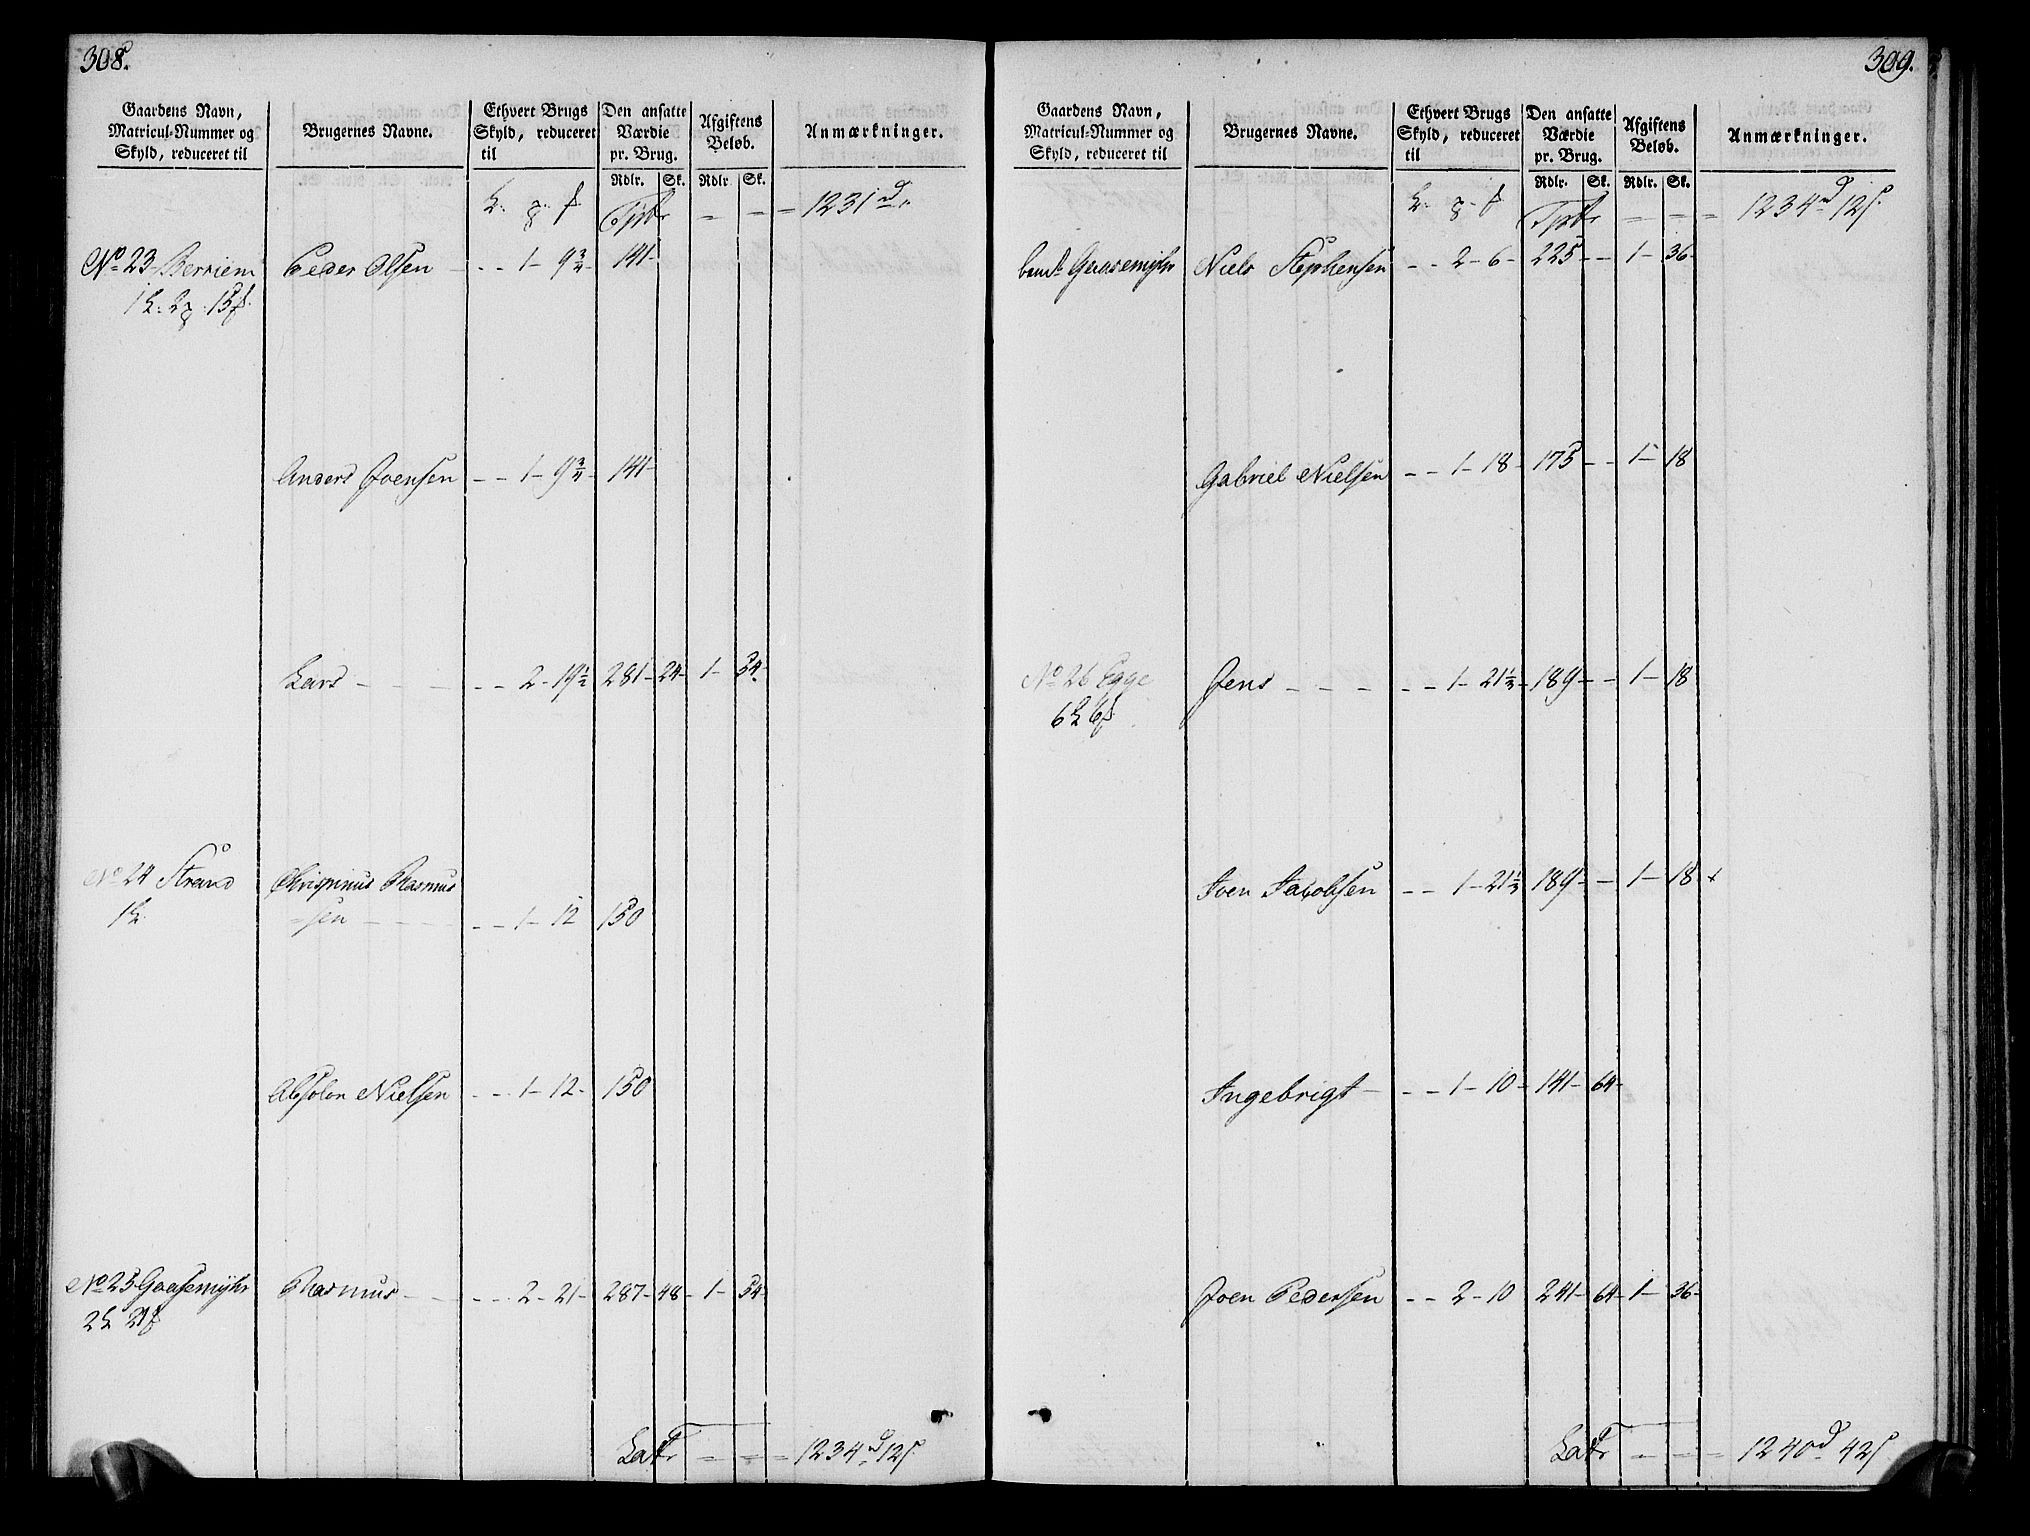 308.
Gaardens Navn, Matricul-Nummer og Skyld, reduceret til
Brugernes Navne.
Ethvert Brugs Skyld, reduceret til
Den ansatte Værdie pr. Brug.
Afgiftens Beløb.
Anmærkninger.
Rdlr. Sk. Rdlr. Sk.
Tpt - - - 1231 d
No 23 Berriem Peder Olsen - - - 1 - 9 3/4 - 141 -
Anders Joensen - - 1 - 9 3/4 - 141 -
Lars - - - - - 2 - 19 1/2 281 - 24 - 1 - 54.
No 24 Strand Chrispinus Rasmus
=sen - - - - - 1 - 12 150
Absolon Nielsen - - 1 - 12 - 150
No 25 Gaasemyhr Rasmus - - - - 2 - 21 - 287 - 48 - 1 - 54 -
Latr - - - 1234 d 12 s
309.
Gaardens Navn, Matricul-Nummer og Skyld, reduceret til
Brugernes Navne.
Ethvert Brugs Skyld, reduceret til
Den ansatte Værdie pr. Brug.
Afgiftens Beløb.
Anmærkninger.
Rdlr. Sk. Rdlr. Sk.
Tpt - - - 1234 d 12 s
Gaasemyhr Niels Stephensen - - 2 - 6 - 225 - - 1 - 36 -
Gabriel Nielsen - - 1 - 18 - 175 - - 1 - 18
No 26 Egge Jens - - - - - 1 - 21 1/3 - 189 - - 1 - 18
Joen Jacobsen - - 1 - 21 1/3 189 - - 1 - 18 +
Ingebrigt - - - 1 - 10 - 141 - 64 -
Joen Pedersen - - 2 - 10 241 - 64 - 1 - 36 -
Latr - - - 1240 d 42 s